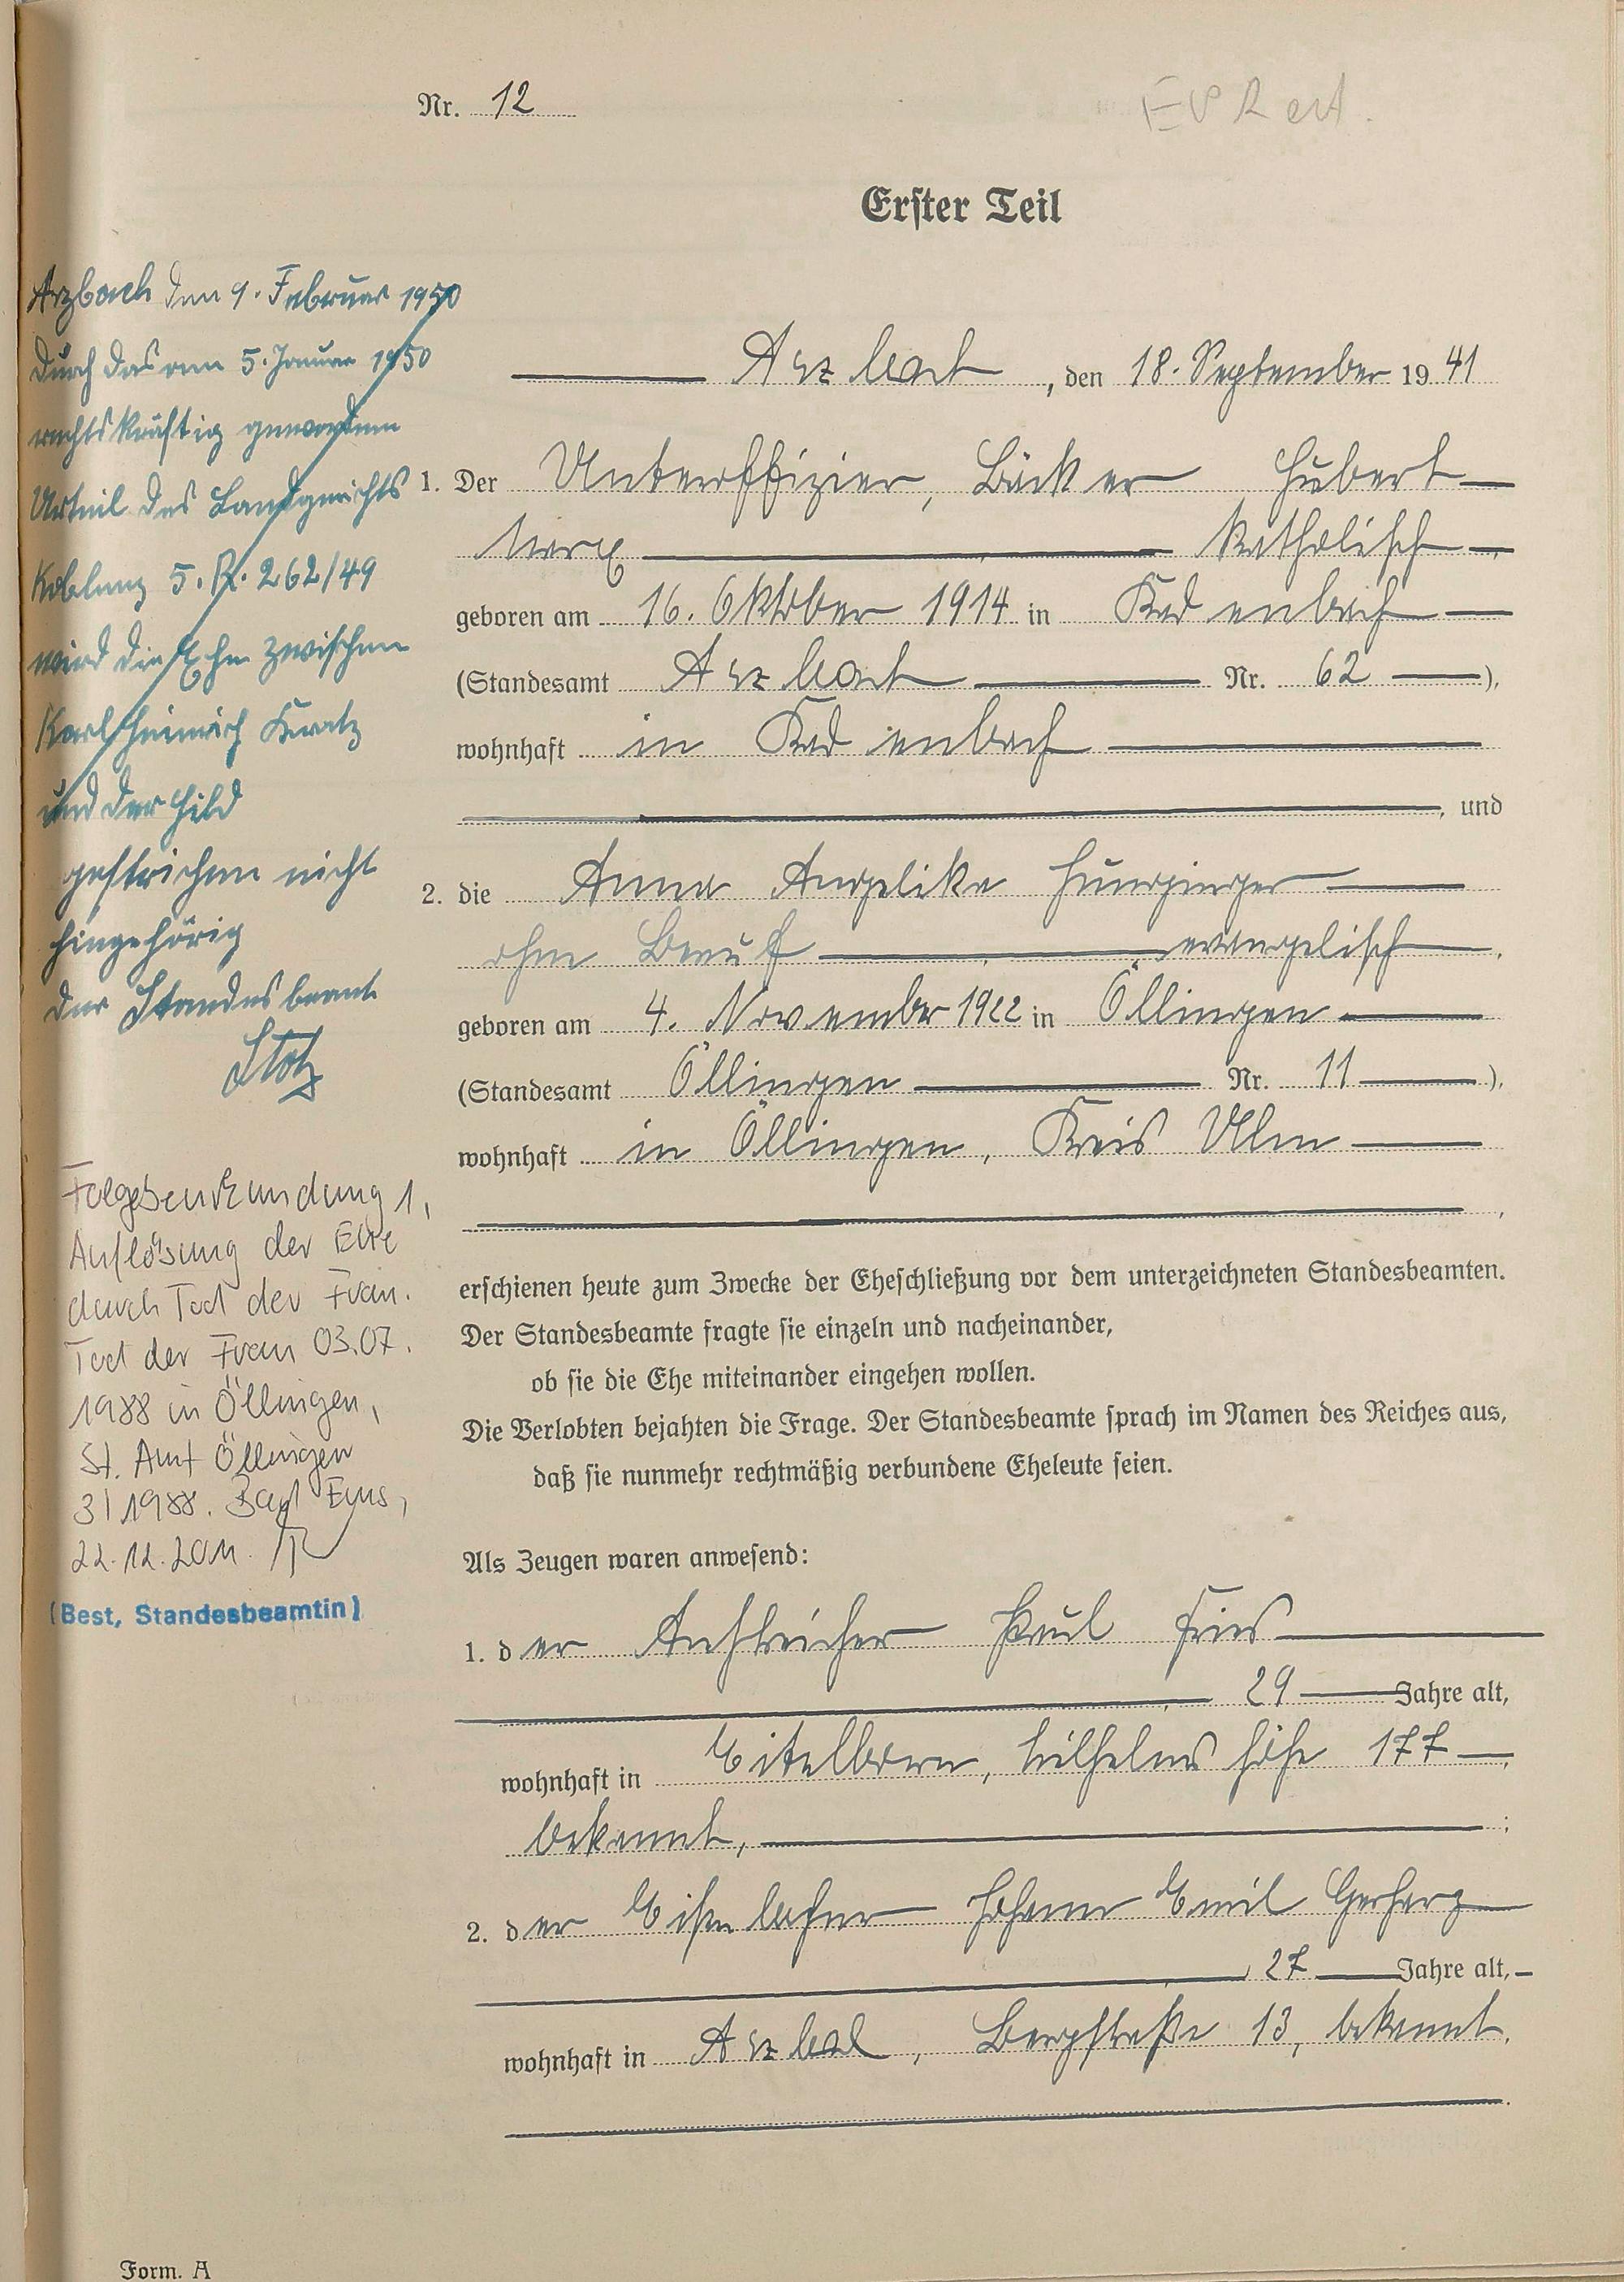 Nr. 12
Erster Teil
Arzbach, den 18. September 1941
1. Der Unteroffizier, Bäcker Hubert
Marx katholisch
geboren am 16. Oktober 1914 in Kadenbach
(Standesamt Arzbach Nr. 62),
wohnhaft in Kadenbach
, und
2. die Anna Angelika
ohne Beruf, evangelisch,
geboren am 4. November 1922 in Öllingen
(Standesamt Öllingen Nr. 11),
wohnhaft in Öllingen, Kreis Ulm
,
erschienen heute zum Zwecke der Eheschließung vor dem unterzeichneten Standesbeamten.
Der Standesbeamte fragte sie einzeln und nacheinander,
ob sie die Ehe miteinander eingehen wollen.
Die Verlobten bejahten die Frage. Der Standesbeamte sprach im Namen des Reiches aus,
daß sie nunmehr rechtmäßig verbundene Eheleute seien.
Als Zeugen waren anwesend:
1. der Anstreicher Paul Fries
29 Jahre alt,
wohnhaft in Eitelborn, Wilhelms höhe 177,
bekannt, ;
2. der Johann Emil Gerharz
, 27 Jahre alt,
wohnhaft in Arzbach, Bergstraße 13, bekannt.
Arzbach den 9. Februar 1950
Durch das am 5. Januar 1950
rechtskräftig gewordene
Urteil des Landgerichts
Koblenz 5. R. 262/49
wird die Ehe zwischen
Karl Heinrich Kratz
und der Hild
gestrichen nicht
hingehörig
Der Standesbeamte
Stotz
Folgebeurkundung 1,
Auflösung der Ehe
durch Tod der Frau.
Tod der Frau 03.07.
1988 in Öllingen,
St. Amt Öllingen
3/1988. Bad Ems,
22.12.2011.
(Best, Standesbeamtin)
Form. A